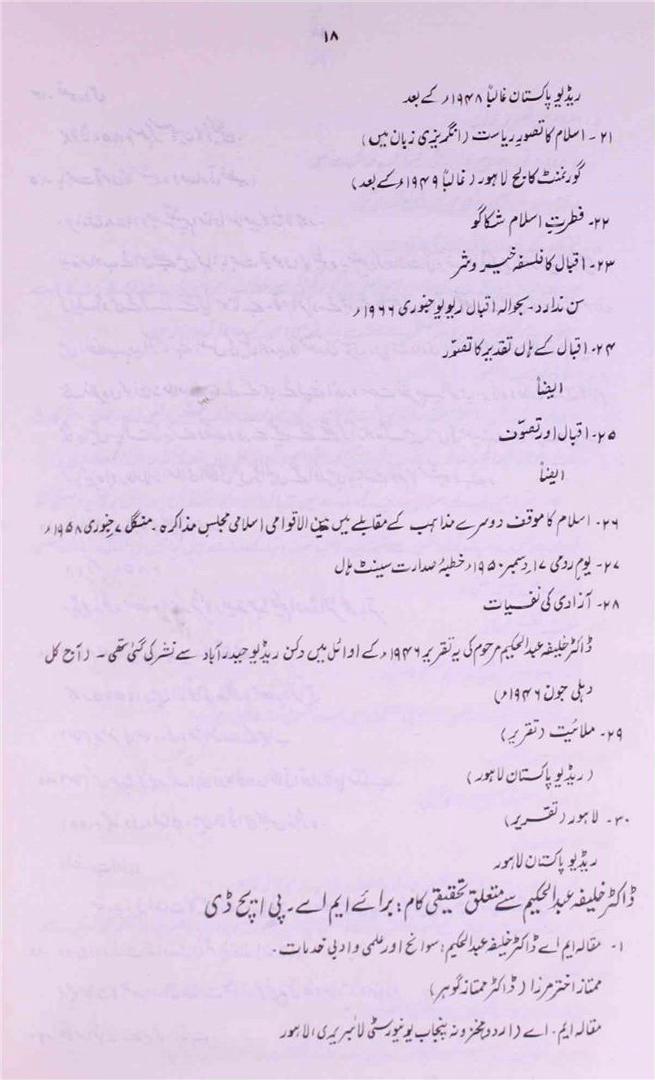 ۱۸
ریڈیو پاکستان غالباً ۱۹۴۸ء کے بعد
۲۱۔ اسلام کا تصورِ ریاست (انگریزی زبان میں)
گورنمنٹ کالج لاہور (غالباً ۱۹۴۹ء کے بعد)
۲۲۔ فطرتِ اسلام شکاگو
۲۳۔ اقبال کا فلسفہ خیر و شر
سن ندارد۔ بحوالہ اقبال ریویو جنوری ۱۹۶۶ء
۲۴۔ اقبال کے ہاں تقدیر کا تصوّر
ایضاً
۲۵۔ اقبال اور تصوّف
ایضاً
۲۶۔ اسلام کا موقف دوسرے مذاہب کے مقابلے میں بین الاقوامی اسلامی مجلسِ مذاکرہ۔ منگل ۷ جنوری ۱۹۵۸ء
۲۷۔ یومِ رومی ۱۷ دسمبر ۱۹۵۰ء خطبۂ صدارت سینٹ ہال
۲۸۔ آزادی کی نفسیات
ڈاکٹر خلیفہ عبدالحکیم مرحوم کی یہ تقریر ۱۹۴۶ء کے اوائل میں دکن ریڈیو حیدرآباد سے نشر کی گئی تھی۔ (آج کل
دہلی جون ۱۹۴۶ء)
۲۹۔ ملائیت (تقریر)
(ریڈیو پاکستان لاہور)
۳۰۔ لاہور (تقریر)
ریڈیو پاکستان لاہور
ڈاکٹر خلیفہ عبدالحکیم سے متعلق تحقیقی کام: برائے ایم اے۔ پی ایچ ڈی
۱۔ مقالہ ایم اے ڈاکٹر خلیفہ عبدالحکیم: سوانح اور علمی و ادبی خدمات۔
ممتاز اختر مرزا (ڈاکٹر ممتاز گوہر)
مقالہ ایم۔ اے (اردو) مخزونہ پنجاب یونیورسٹی لائبریری لاہور